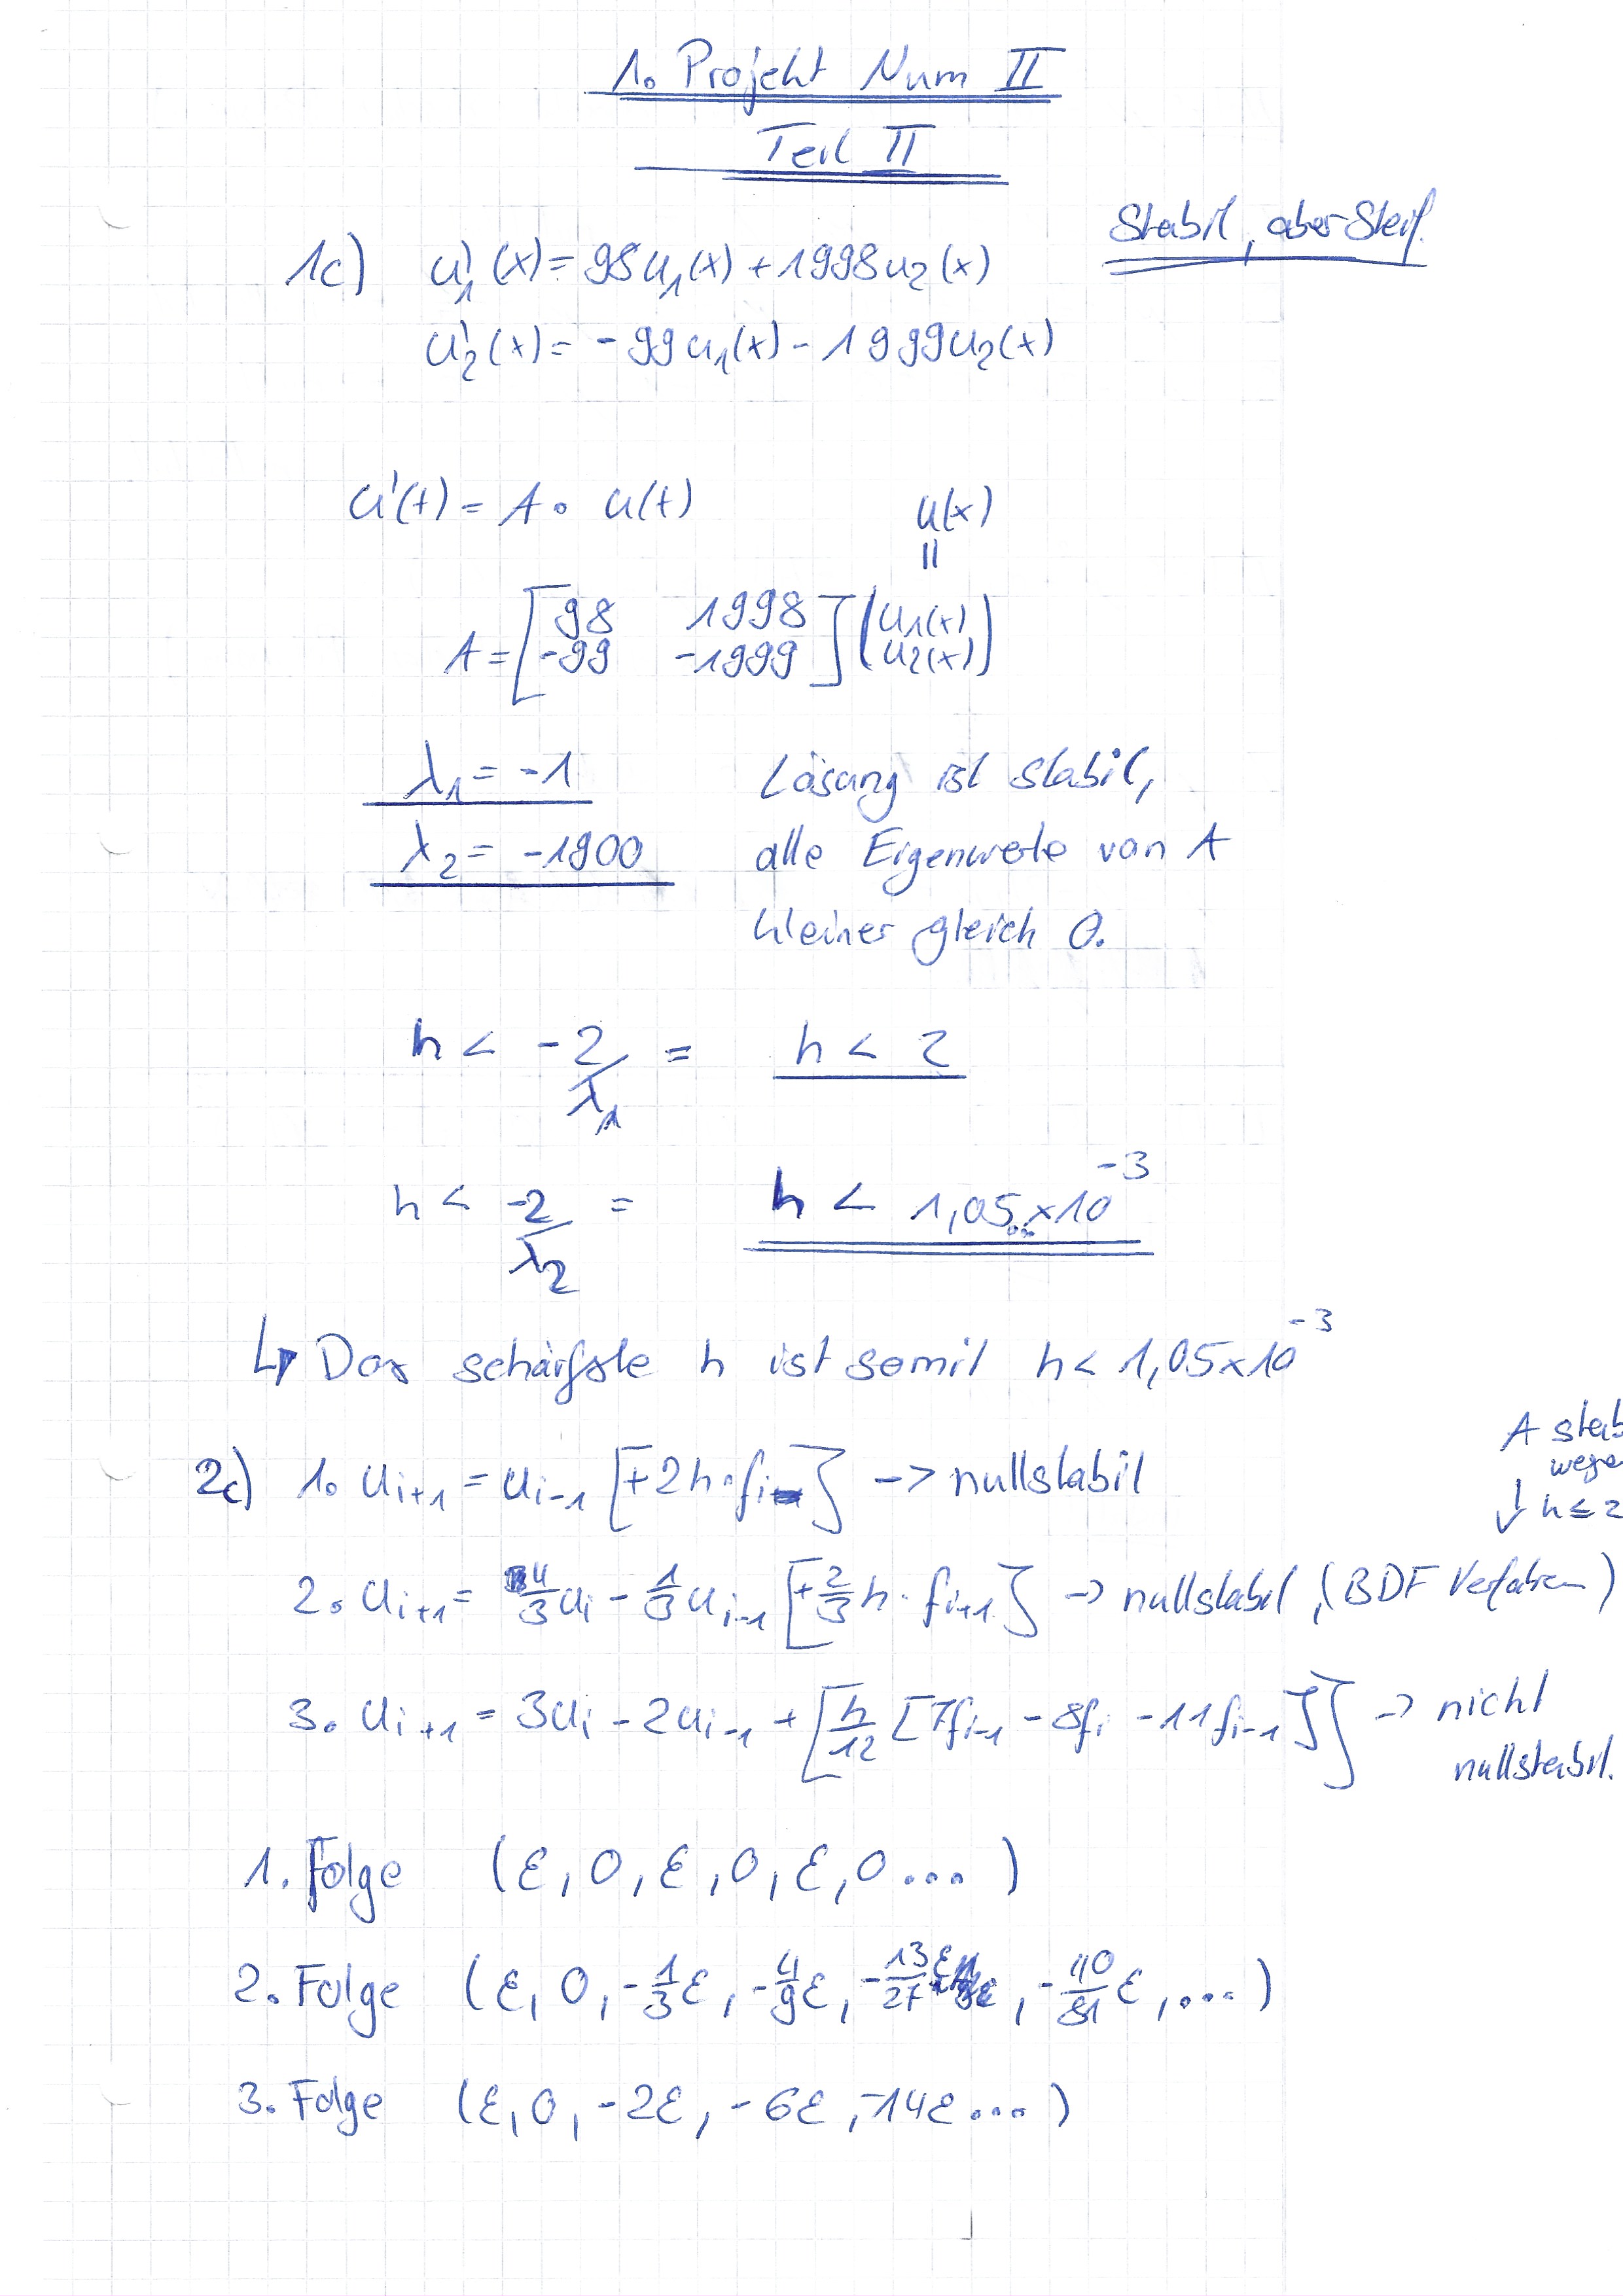 1. Projekt Num II
Teil II
Stabil, aber Steif.
1c) u₁'(x) = 98u₁(x) + 1998u₂(x)
u₂'(x) = -99u₁(x) - 1999u₂(x)
u'(t) = A∘ u(t)
u(x)
||
A = [98 1998] (u₁(x)
-99 -1999 u₂(x))
λ₁ = -1 Lösung ist stabil,
λ₂ = -1900 alle Eigenwerte von A
kleiner gleich 0.
h < -2/λ₁ = h < 2
h < -2/λ₂ = h < 1,05...×10⁻³
↳ Das schärfste h ist somit h < 1,05×10⁻³
A stab
wege
↓ h ≤ 2
2c) 1. uᵢ₊₁ = uᵢ₋₁ [+2h·fᵢ] -> nullstabil
2. uᵢ₊₁ = 4/3 uᵢ - 1/3 uᵢ₋₁ [+2/3 h · fᵢ₊₁] -> nullstabil, (BDF Verfahren)
3. uᵢ₊₁ = 3uᵢ - 2uᵢ₋₁ + [h/12 [7fᵢ₋₁ - 8fᵢ - 11fᵢ₋₁]] -> nicht
nullstabil.
1. Folge (ε, 0, ε, 0, ε, 0 ... )
2. Folge (ε, 0, -1/3ε, -4/9ε, -13/27ε, -40/81ε, ... )
3. Folge (ε, 0, -2ε, -6ε, -14ε ... )